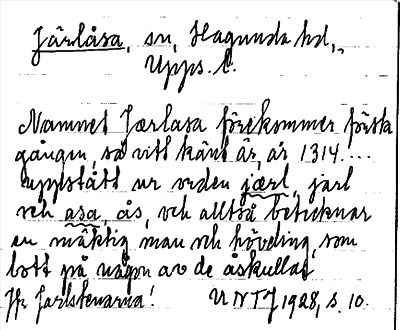 Järlåsa, sn, Hagunda hd,
Upps. l.
Namnet Jærlasa förekommer första
gången, så vitt känt är, år 1314....
uppstått ur orden jærl, jarl
och asa, ås, och alltså betecknar
en mäktig man och hövding, som
bott på någon av de åskullar
Jfr Jarlstenarna! UNT 7/1 1928, s. 10.